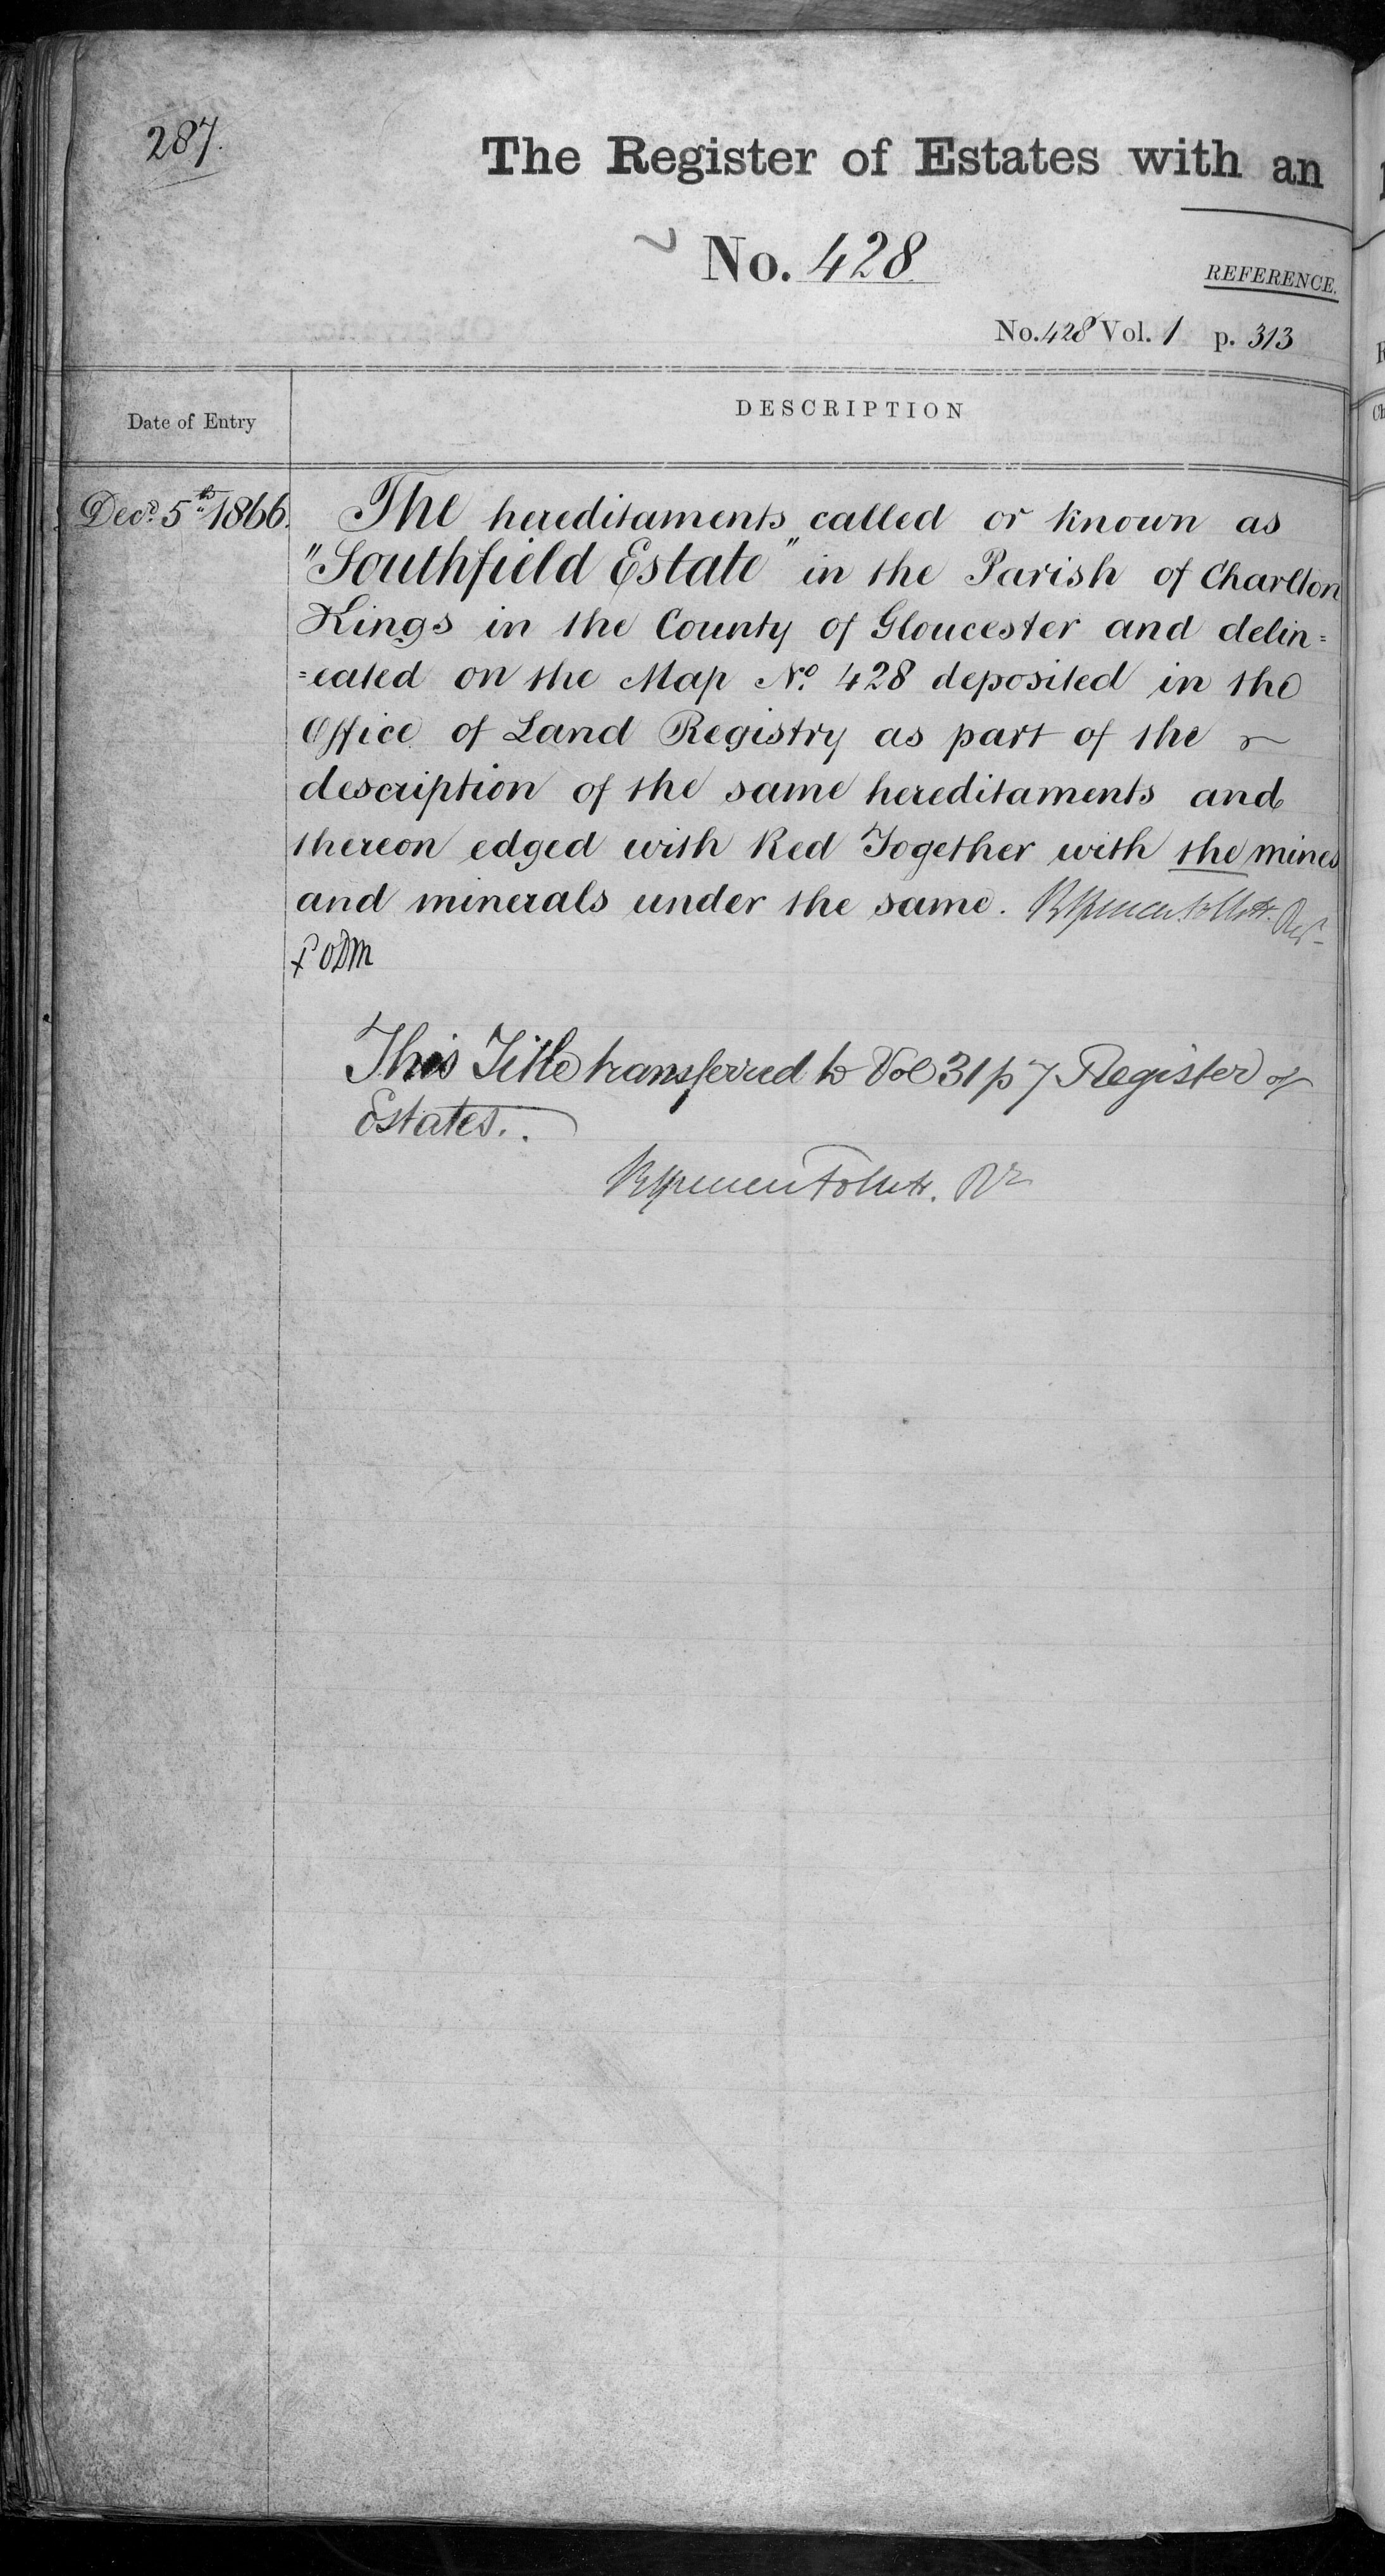 287.
The Register of Estates with an
No. 428
REFERENCE.
No. 428 Vol. 1 p. 313
Date of Entry
DESCRIPTION
Decr. 5th 1866.
The hereditaments called or known as
"Southfield Estate" in the Parish of Charlton
Kings in the County of Gloucester and delin=
=eated on the Map No. 428 deposited in the
Office of Land Registry as part of the
description of the same hereditaments and
thereon edged with Red Together with the mines
and minerals under the same.
This Title transferred to Vol 31 p 7 Register of
Estates.